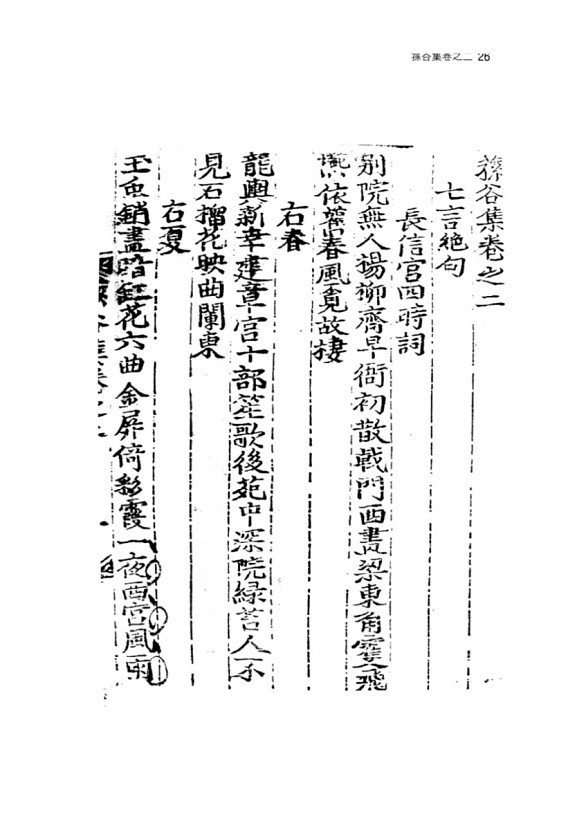 孫谷集卷之二 26
蓀谷集卷之二
七言絶句
長信宮四時詞
別院無人楊柳齊早衙初散戟門西畫梁東角雙飛
燕依舊春風覓故棲
右春
龍輿新幸建章宮十部笙歌後苑中深院緑苔人不
見石榴花映曲闌東
右夏
玉魚銷盡暗缸花六曲金屏倚彩霞一夜西宮風雨